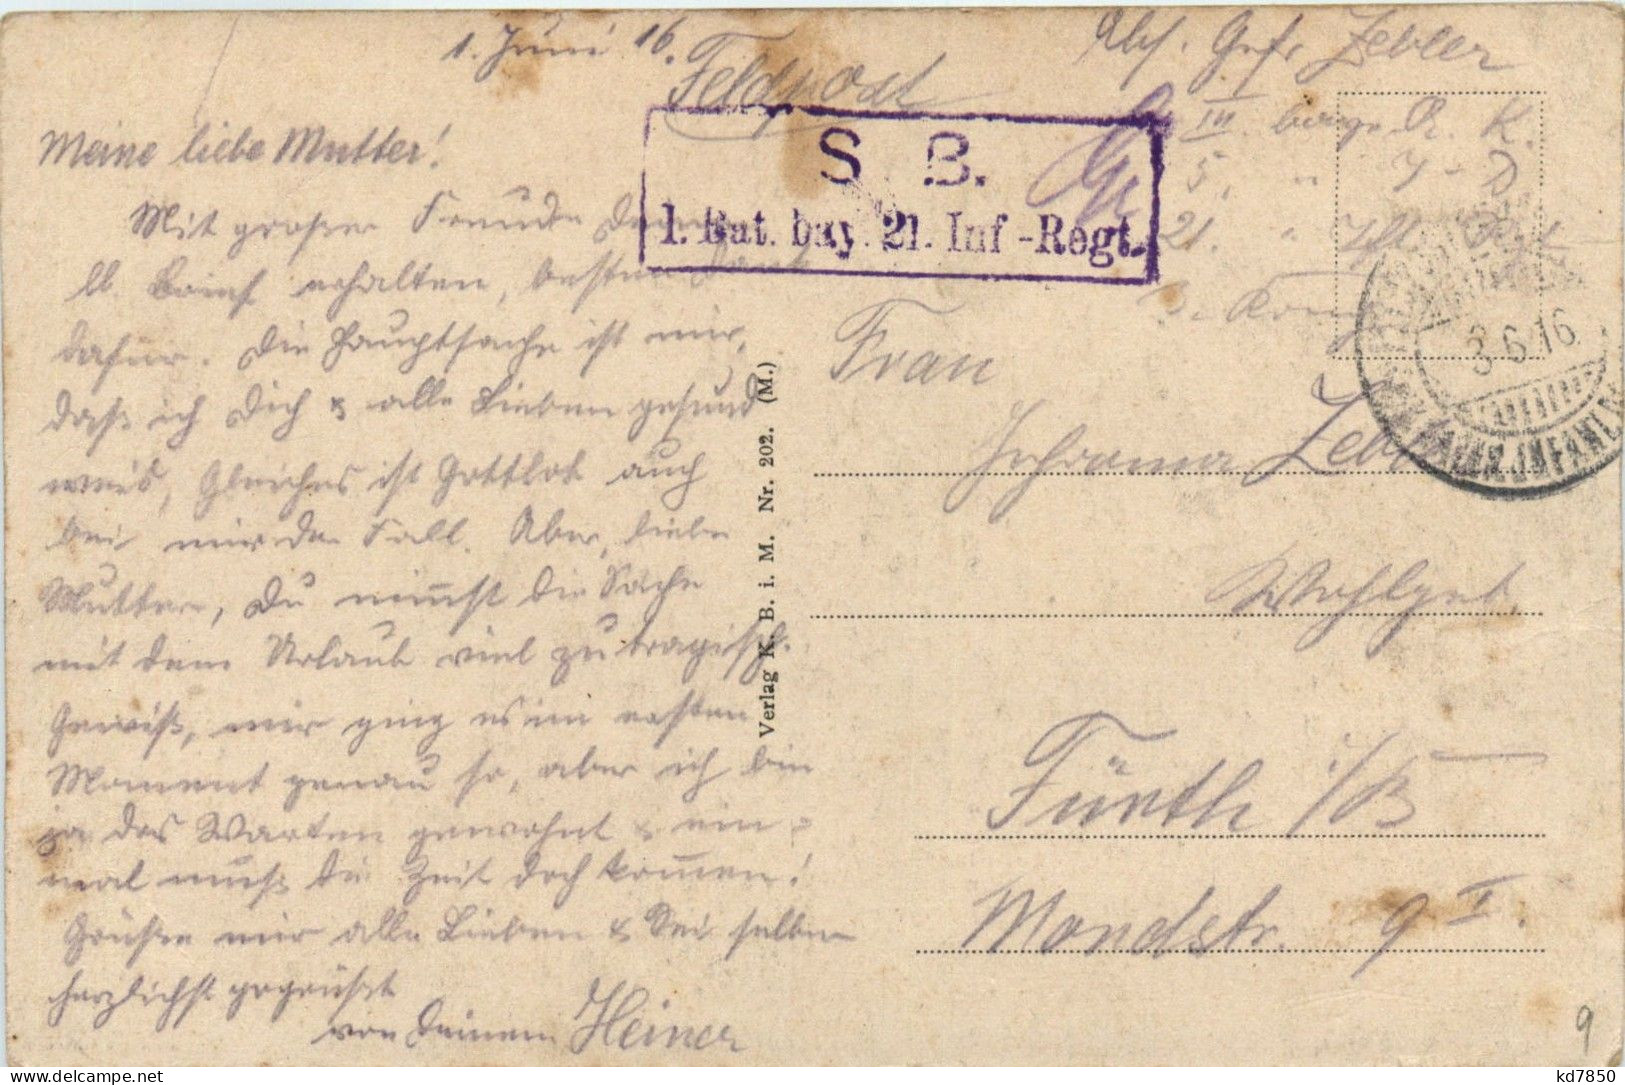 1. Juni 16.
Feldpost
Abs. Gefr. Zebler
III. bayr. A. K.
5. " I. D.
21. " Inf. Regt.
3. Komp.
S. B.
1. Bat. bay. 21. Inf-Regt.
3.6.16
Meine liebe Mutter!
Mit großer Freude Deinen
lb. Brief erhalten, besten Dank
dafür. Die Hauptsache ist mir,
daß ich Dich & alle Lieben gesund
weis, Gleiches ist Gottlob auch
bei mir der Fall. Aber, liebe
Mutter, Du nimmst die Sache
mit dem Urlaub viel zu tragisch.
Gewiß, mir ging es im ersten
Moment genau so, aber ich bin
ja das Warten gewohnt & ein-
mal muß die Zeit doch kommen!
Grüße mir alle Lieben & Sei selber
herzlichst gegrüßt
von Deinem Heiner
Verlag K. B. i. M. Nr. 202. (M.)
Frau
Johanna Zebler
Wohlgeb.
Fürth i/B
Mondstr. 9 I.
9
kd7850